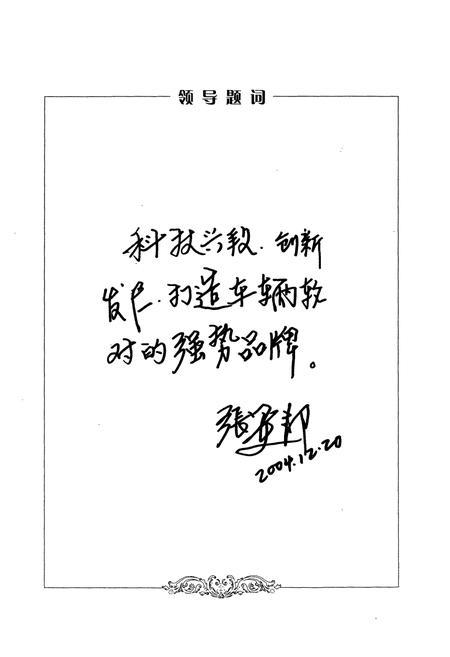 领导题词
科技兴段、创新
发展、打造车辆软
对的强势品牌。
张军邦
2004.12.20